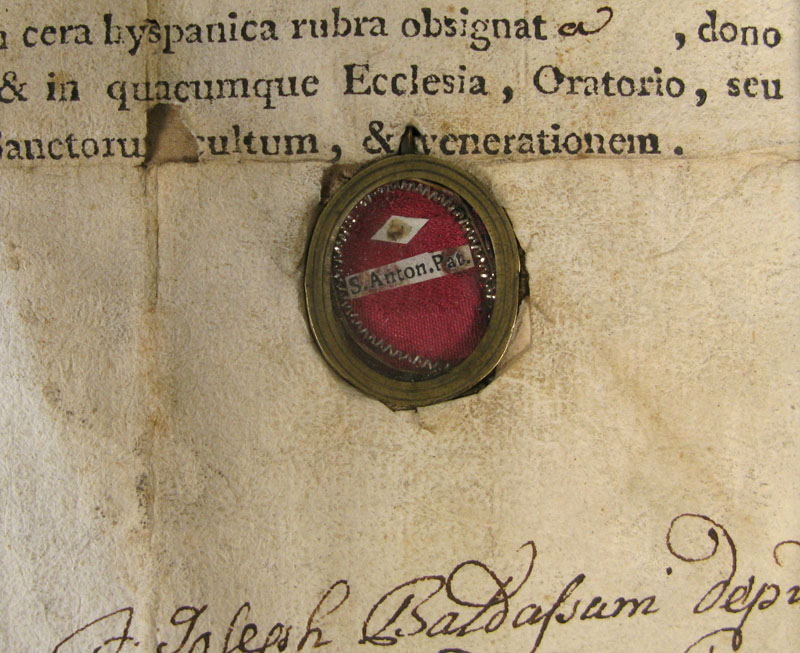 cera hyspanica rubra obsignat a , dono
& in quacumque Ecclesia, Oratorio, seu
cultum, & venerationem.
S. Anton. Pat.
Joseph Baldassari